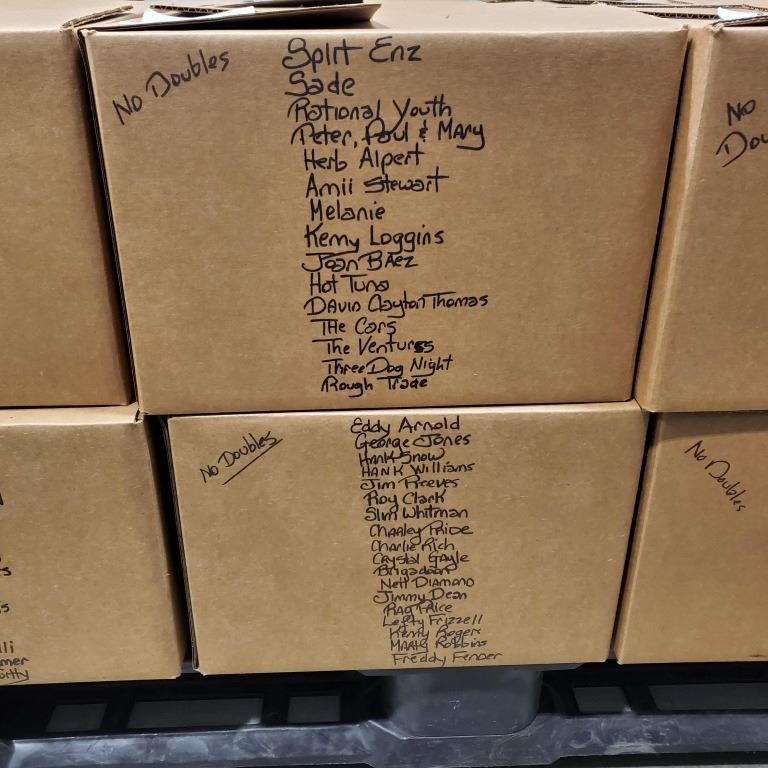 No Doubles
Split Enz
Sade
Rational Youth
Peter, Paul & Mary
Herb Alpert
Amii Stewart
Melanie
Kenny Loggins
Joan Baez
Hot Tuna
David Clayton Thomas
The Cars
The Ventures
Three Dog Night
Rough Trade
No
Dou
No Doubles
Eddy Arnold
George Jones
Hank Snow
Hank Williams
Jim Reeves
Roy Clark
Slim Whitman
Charley Pride
Charlie Rich
Crystal Gayle
Brigadoon
Neil Diamond
Jimmy Dean
Ray Price
Lefty Frizzell
Kenny Rogers
Marty Robbins
Freddy Fender
No Doubles